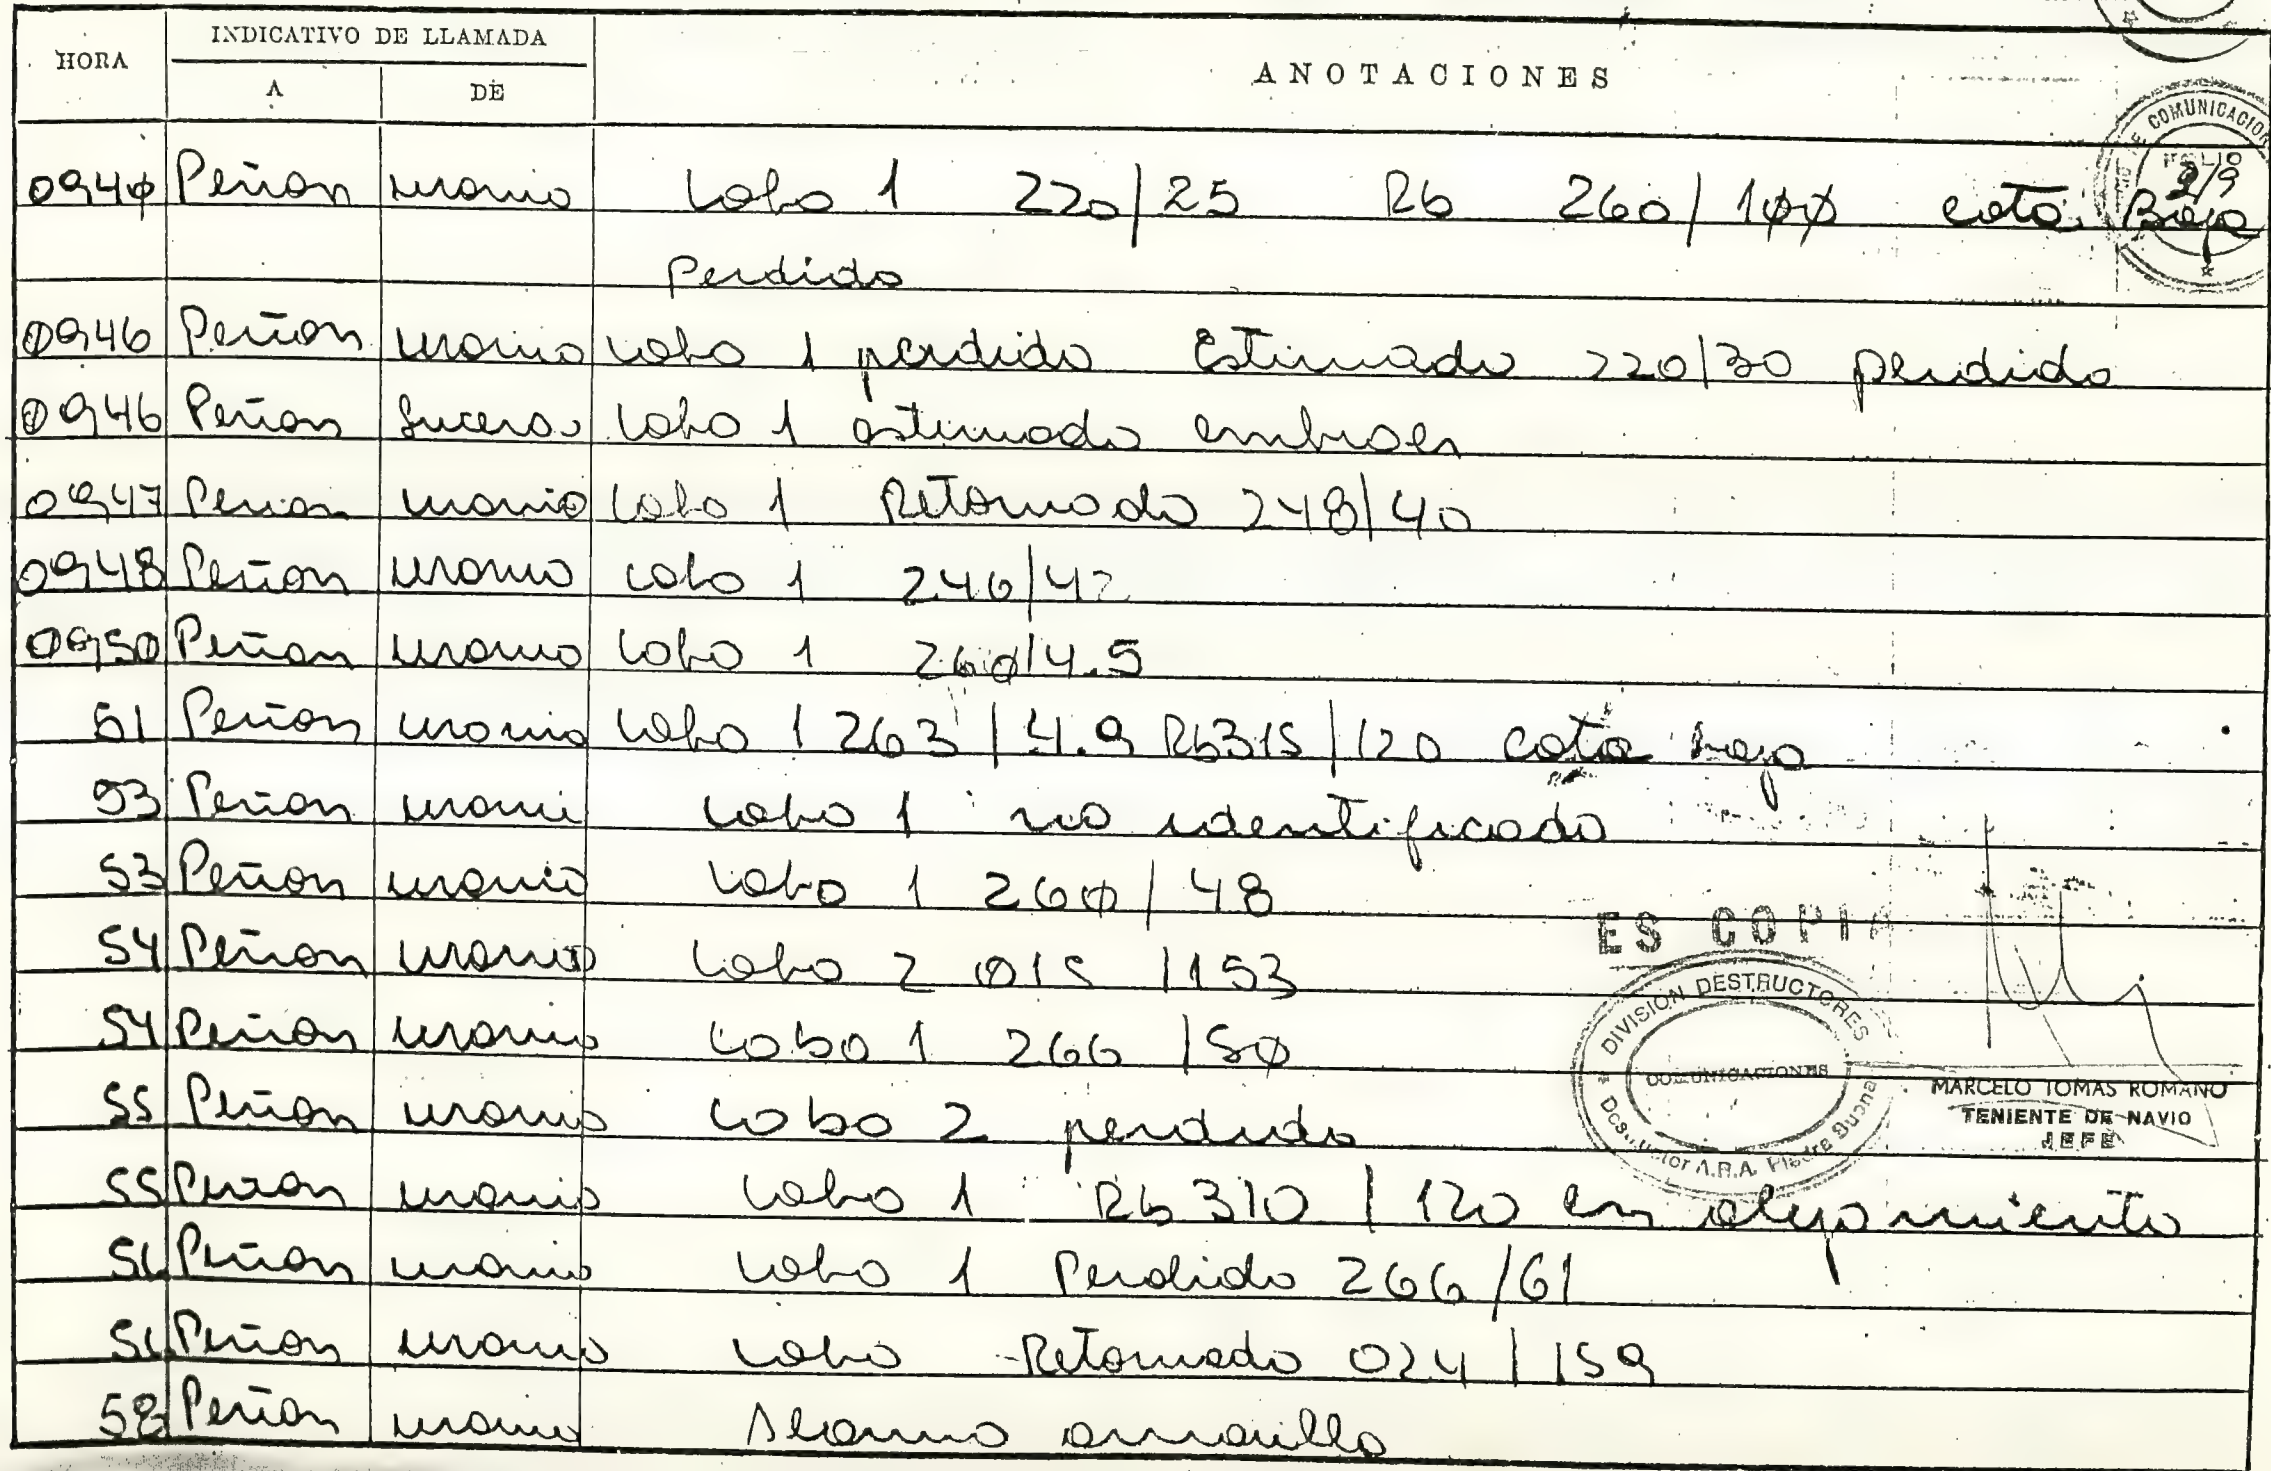 HORA INDICATIVO DE LLAMADA ANOTACIONES
A DE
COMUNICACION
FOLIO
2/9
094ϕ Peñon mario Lobo 1 220/25 Rb 260/1ϕϕ cota Baja
Perdido
0946 Peñon mario Lobo 1 perdido Estimado 220/30 perdido
0946 Peñon Lobo 1 estimado
0947 Peñon mario Lobo 1 Retomado 248/40
0948 Peñon mario Lobo 1 246/42
0950 Peñon mario Lobo 1 26ϕ/4.5
51 Peñon mario Lobo 1 263/4.9 Rb315/120 cota baja
53 Peñon mario Lobo 1 no identificado
53 Peñon mario Lobo 1 26ϕ/48
54 Peñon mario Lobo 2 015/153
54 Peñon mario Lobo 1 266/5ϕ
55 Peñon mario Lobo 2 perdido
55 Peñon mario Lobo 1 Rb 310/120 en alejamiento
56 Peñon mario Lobo 1 Perdido 266/61
56 Peñon mario Lobo Retomado 024/159
58 Peñon mario amarillo
ES COPIA
DIVISION DESTRUCTORES
COMUNICACIONES
A.R.A. Piedra Buena
MARCELO TOMAS ROMANO
TENIENTE DE NAVIO
JEFE